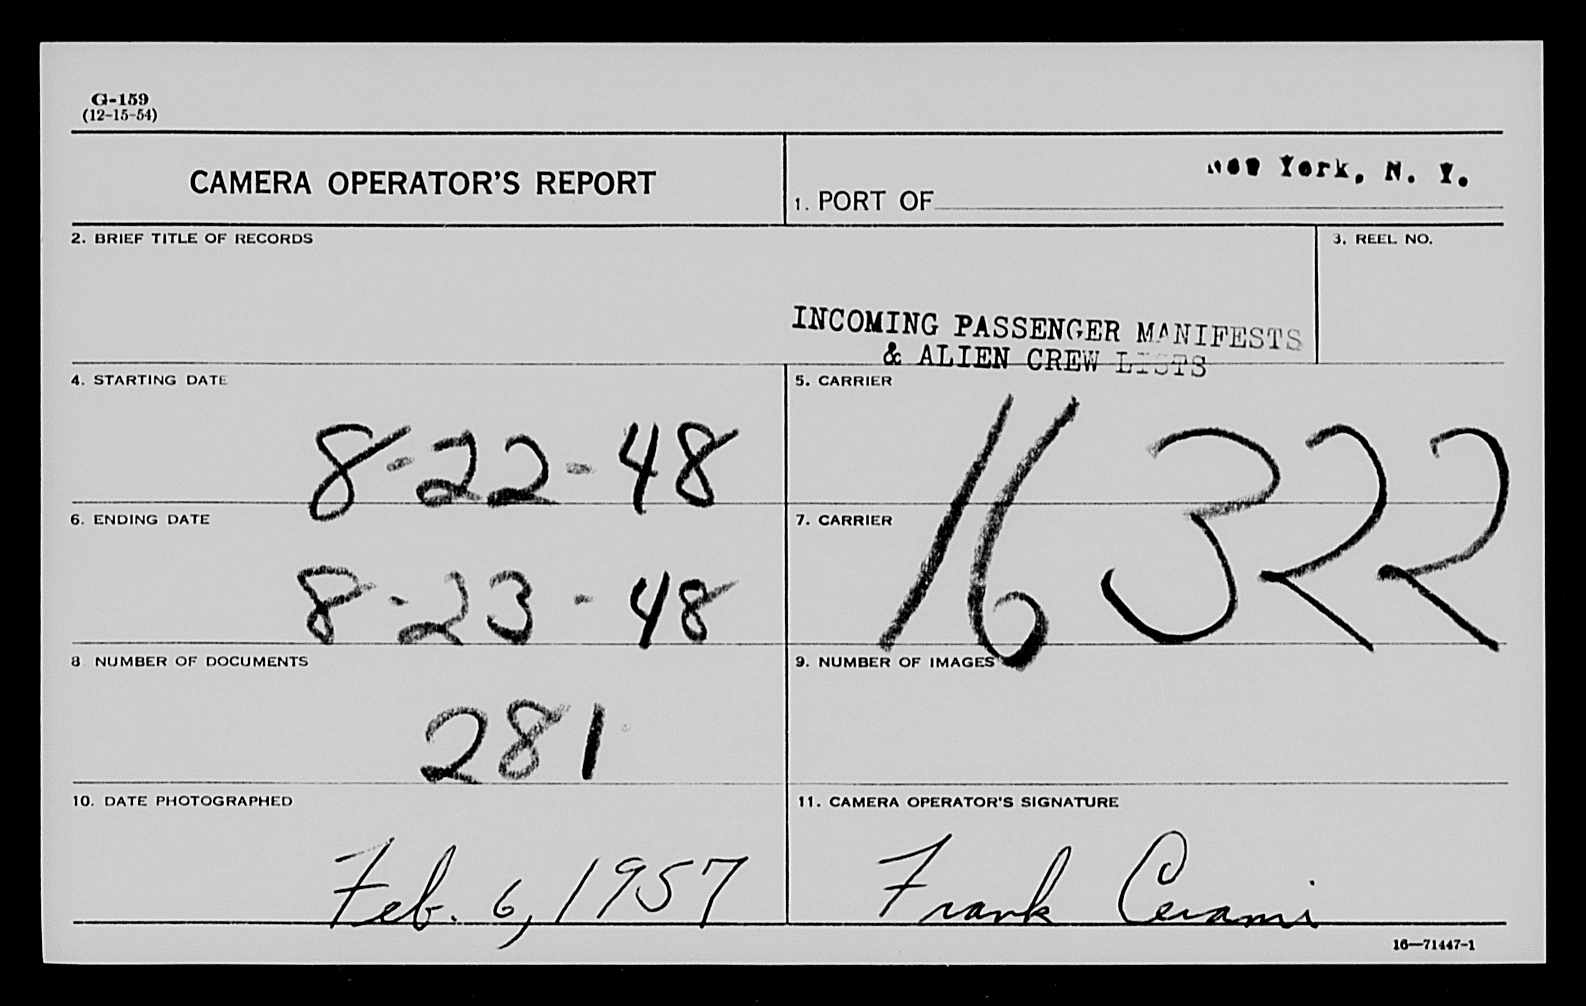 G-159
(12-15-54)
CAMERA OPERATOR'S REPORT
1. PORT OF New York, N. Y.
2. BRIEF TITLE OF RECORDS
3. REEL NO.
INCOMING PASSENGER MANIFESTS
& ALIEN CREW LISTS
4. STARTING DATE
8-22-48
5. CARRIER
16322
6. ENDING DATE
8-23-48
7. CARRIER
8 NUMBER OF DOCUMENTS
281
9. NUMBER OF IMAGES
10. DATE PHOTOGRAPHED
Feb. 6, 1957
11. CAMERA OPERATOR'S SIGNATURE
Frank Cerami
16—71447-1